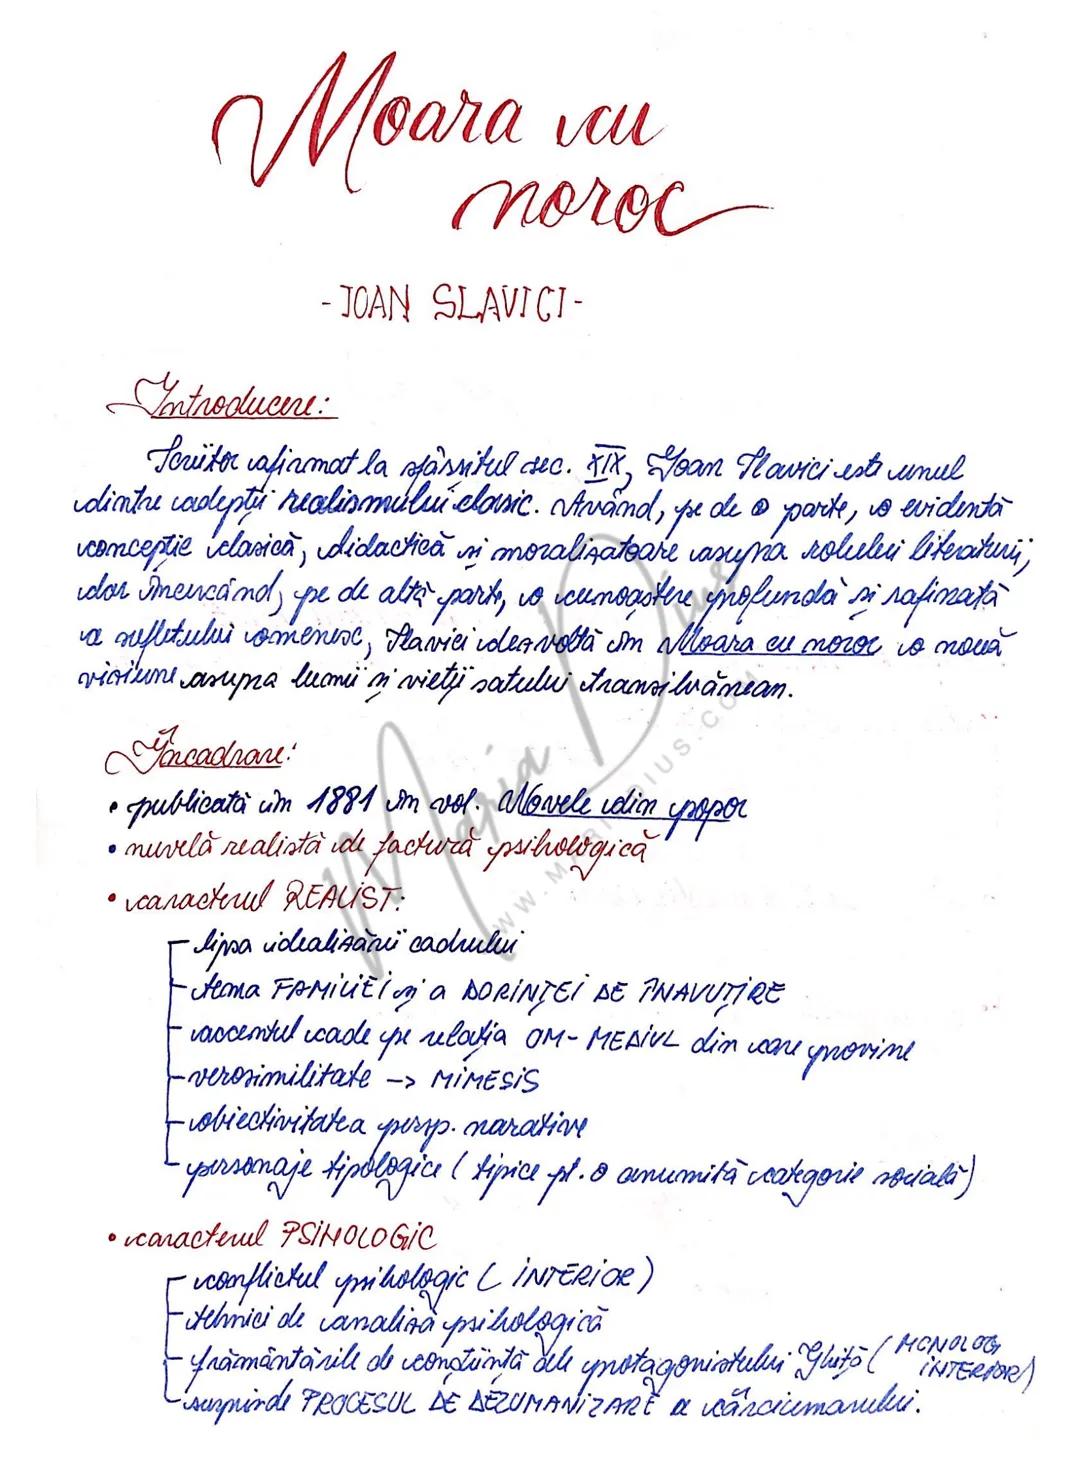 Moara cu
noroc
- IOAN SLAVICI -
Introducere:
Scriitor afirmat la sfârșitul sec. XIX, Ioan Slavici este unul
dintre adepții realismului clasic. Având, pe de o parte, o evidentă
concepție clasică, didactică și moralizatoare asupra rolului literaturii,
dar încercând, pe de altă parte, o cunoaștere profundă și rafinată
a sufletului omenesc, Slavici dezvoltă în Moara cu noroc o nouă
viziune asupra lumii și vieții satului transilvănean.
Încadrare:
• publicată în 1881 în vol. Novele din popor
• nuvelă realistă de factură psihologică
• caracterul REALIST:
- lipsa idealizării cadrului
- tema FAMILIEI și a DORINȚEI DE ÎNAVUȚIRE
- accentul cade pe relația OM-MEDIUL din care provine
- verosimilitate -> MIMESIS
- obiectivitatea persp. narative
- personaje tipologice (tipice pt. o anumită categorie socială)
• caracterul PSIHOLOGIC
- conflictul psihologic (INTERIOR)
- tehnici de analiză psihologică
- frământările de conștiință ale protagonistului Ghiță (MONOLOG INTERIOR)
- surprinde PROCESUL DE DEZUMANIZARE a cârciumarului.
Maria Dius
WWW.MARIADIUS.COM